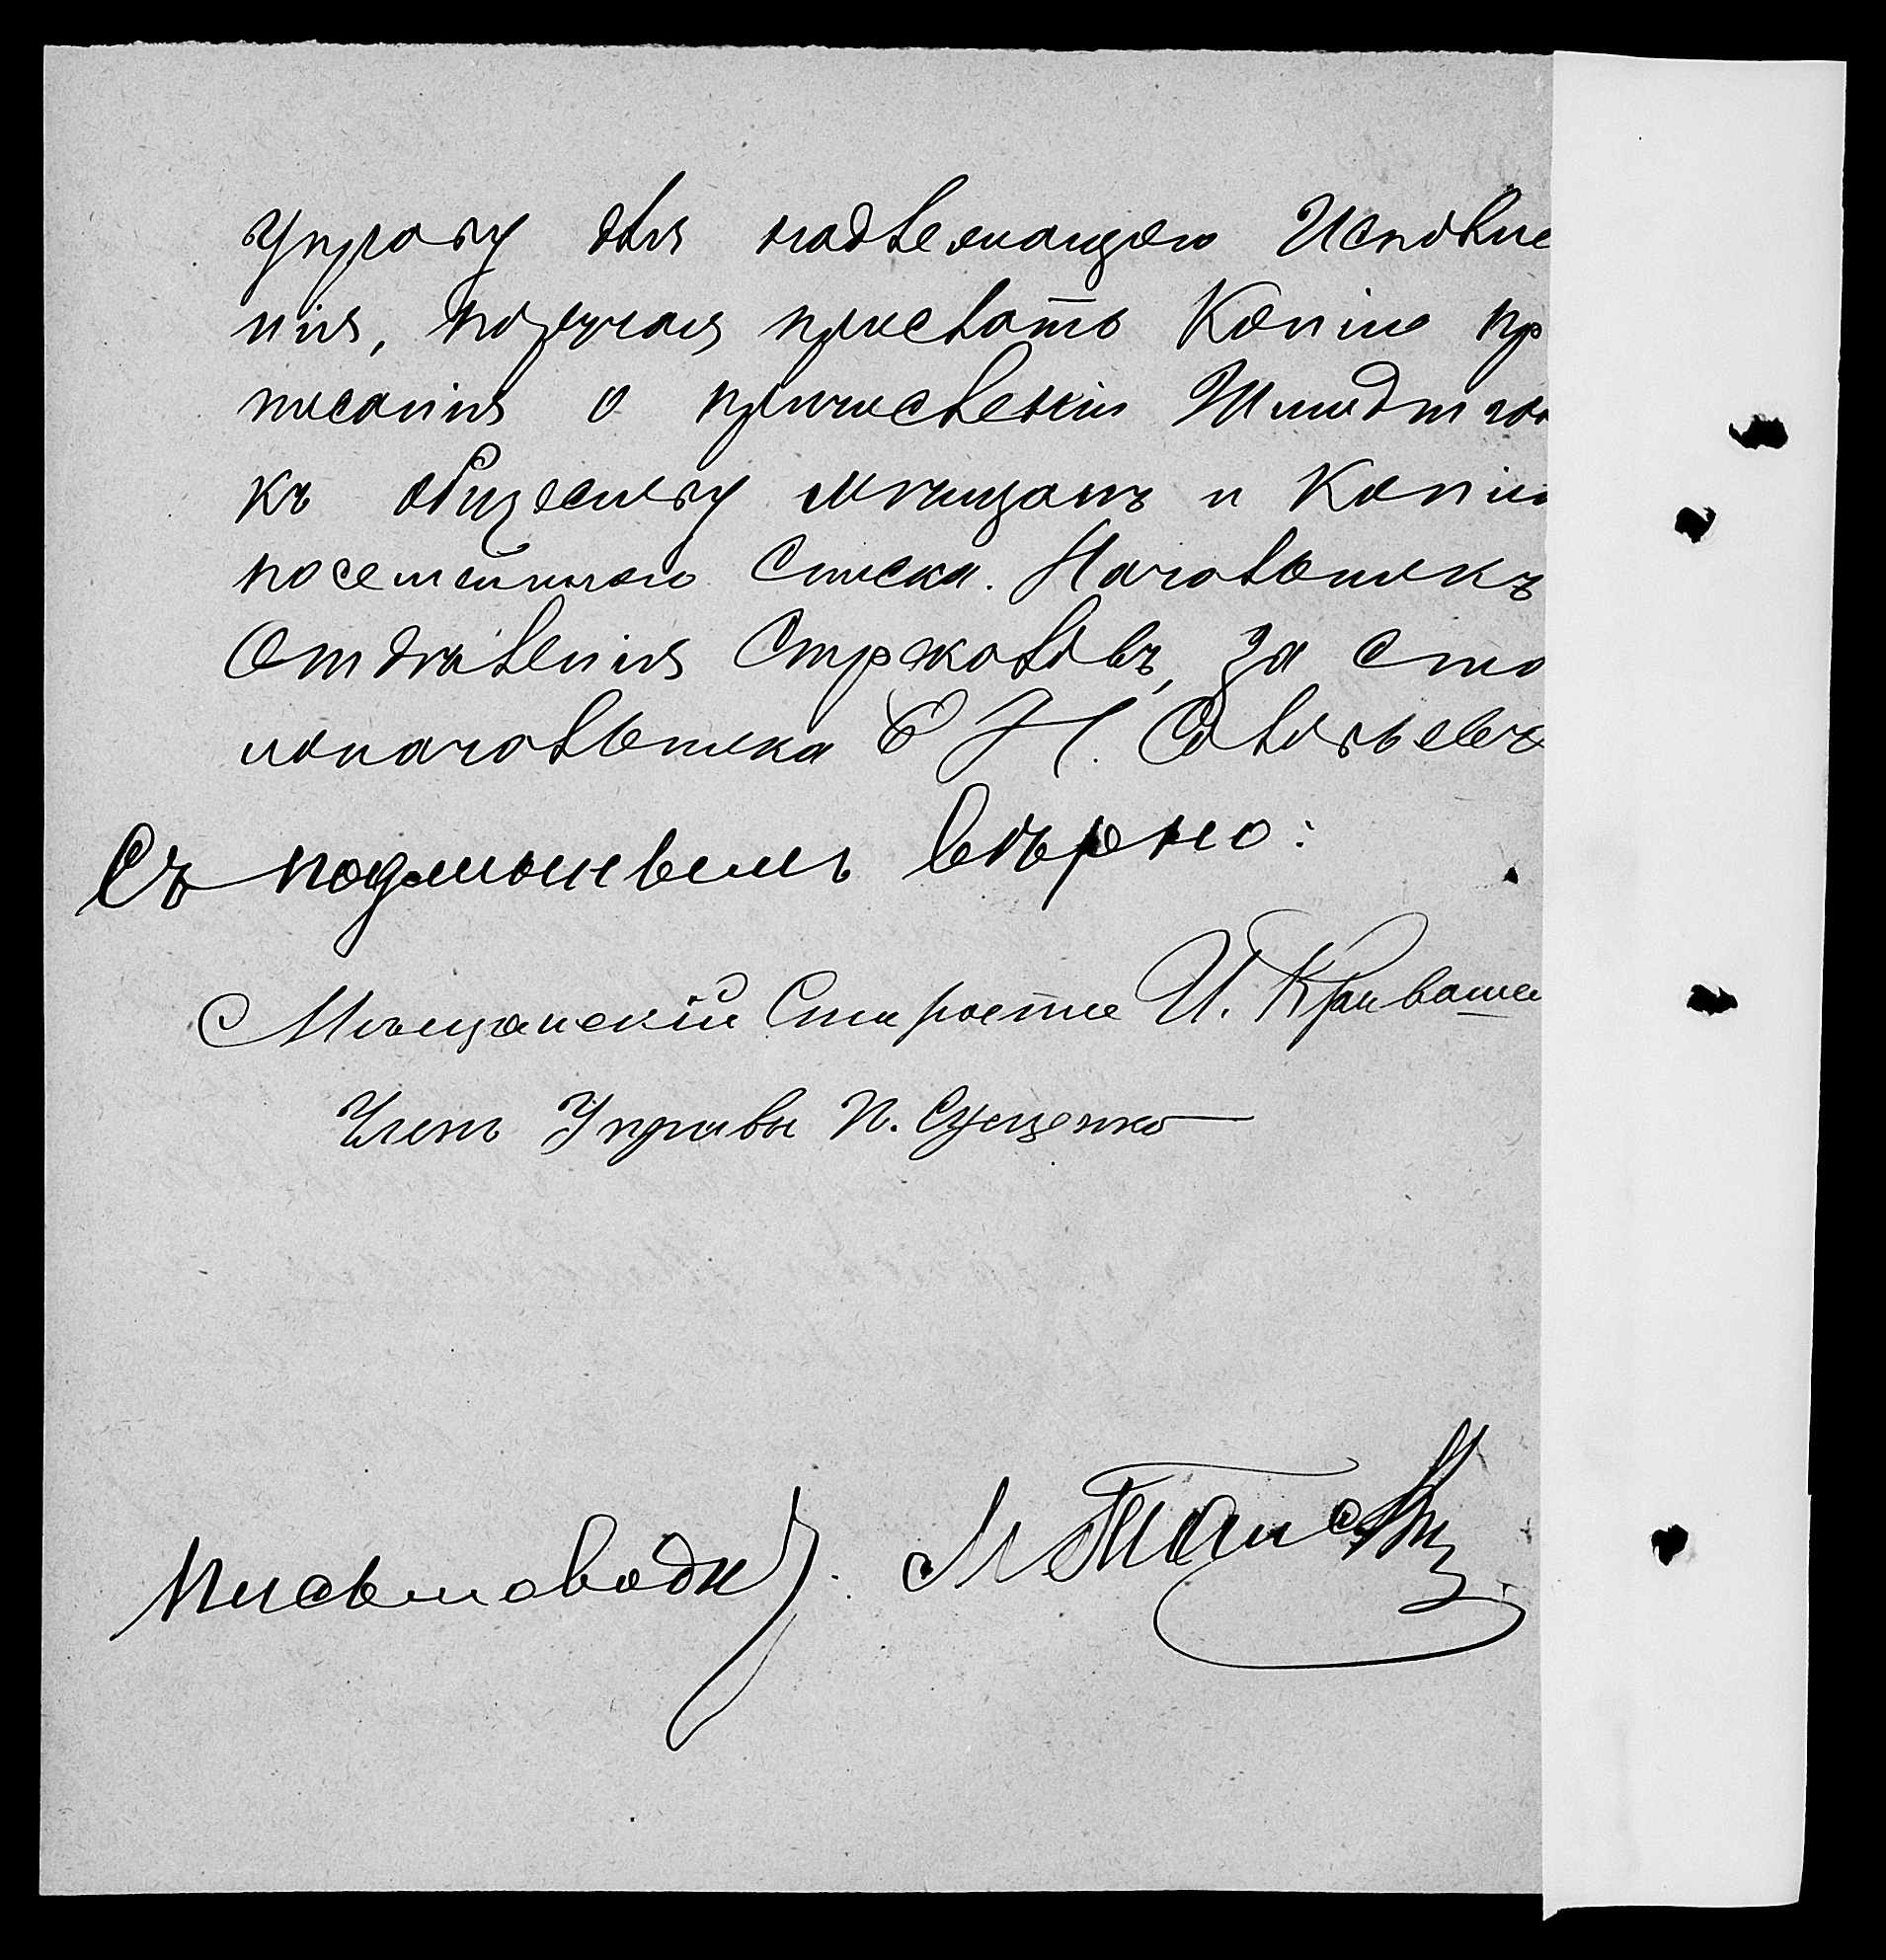 Управу для надлежащаго Исполне
нія, поручая прислать Копію пр
писанія о причисленіи
къ обществу мѣщанъ и Копію
посемейнаго Списка. Начальникъ
Отдѣленія Стржаловъ, за сто
лоначальника Н. Соловьевъ
Съ подлиннымъ вѣрно:
Мѣщанскій Староста И.
Членъ Управы П. Сущенко
Письмоводи